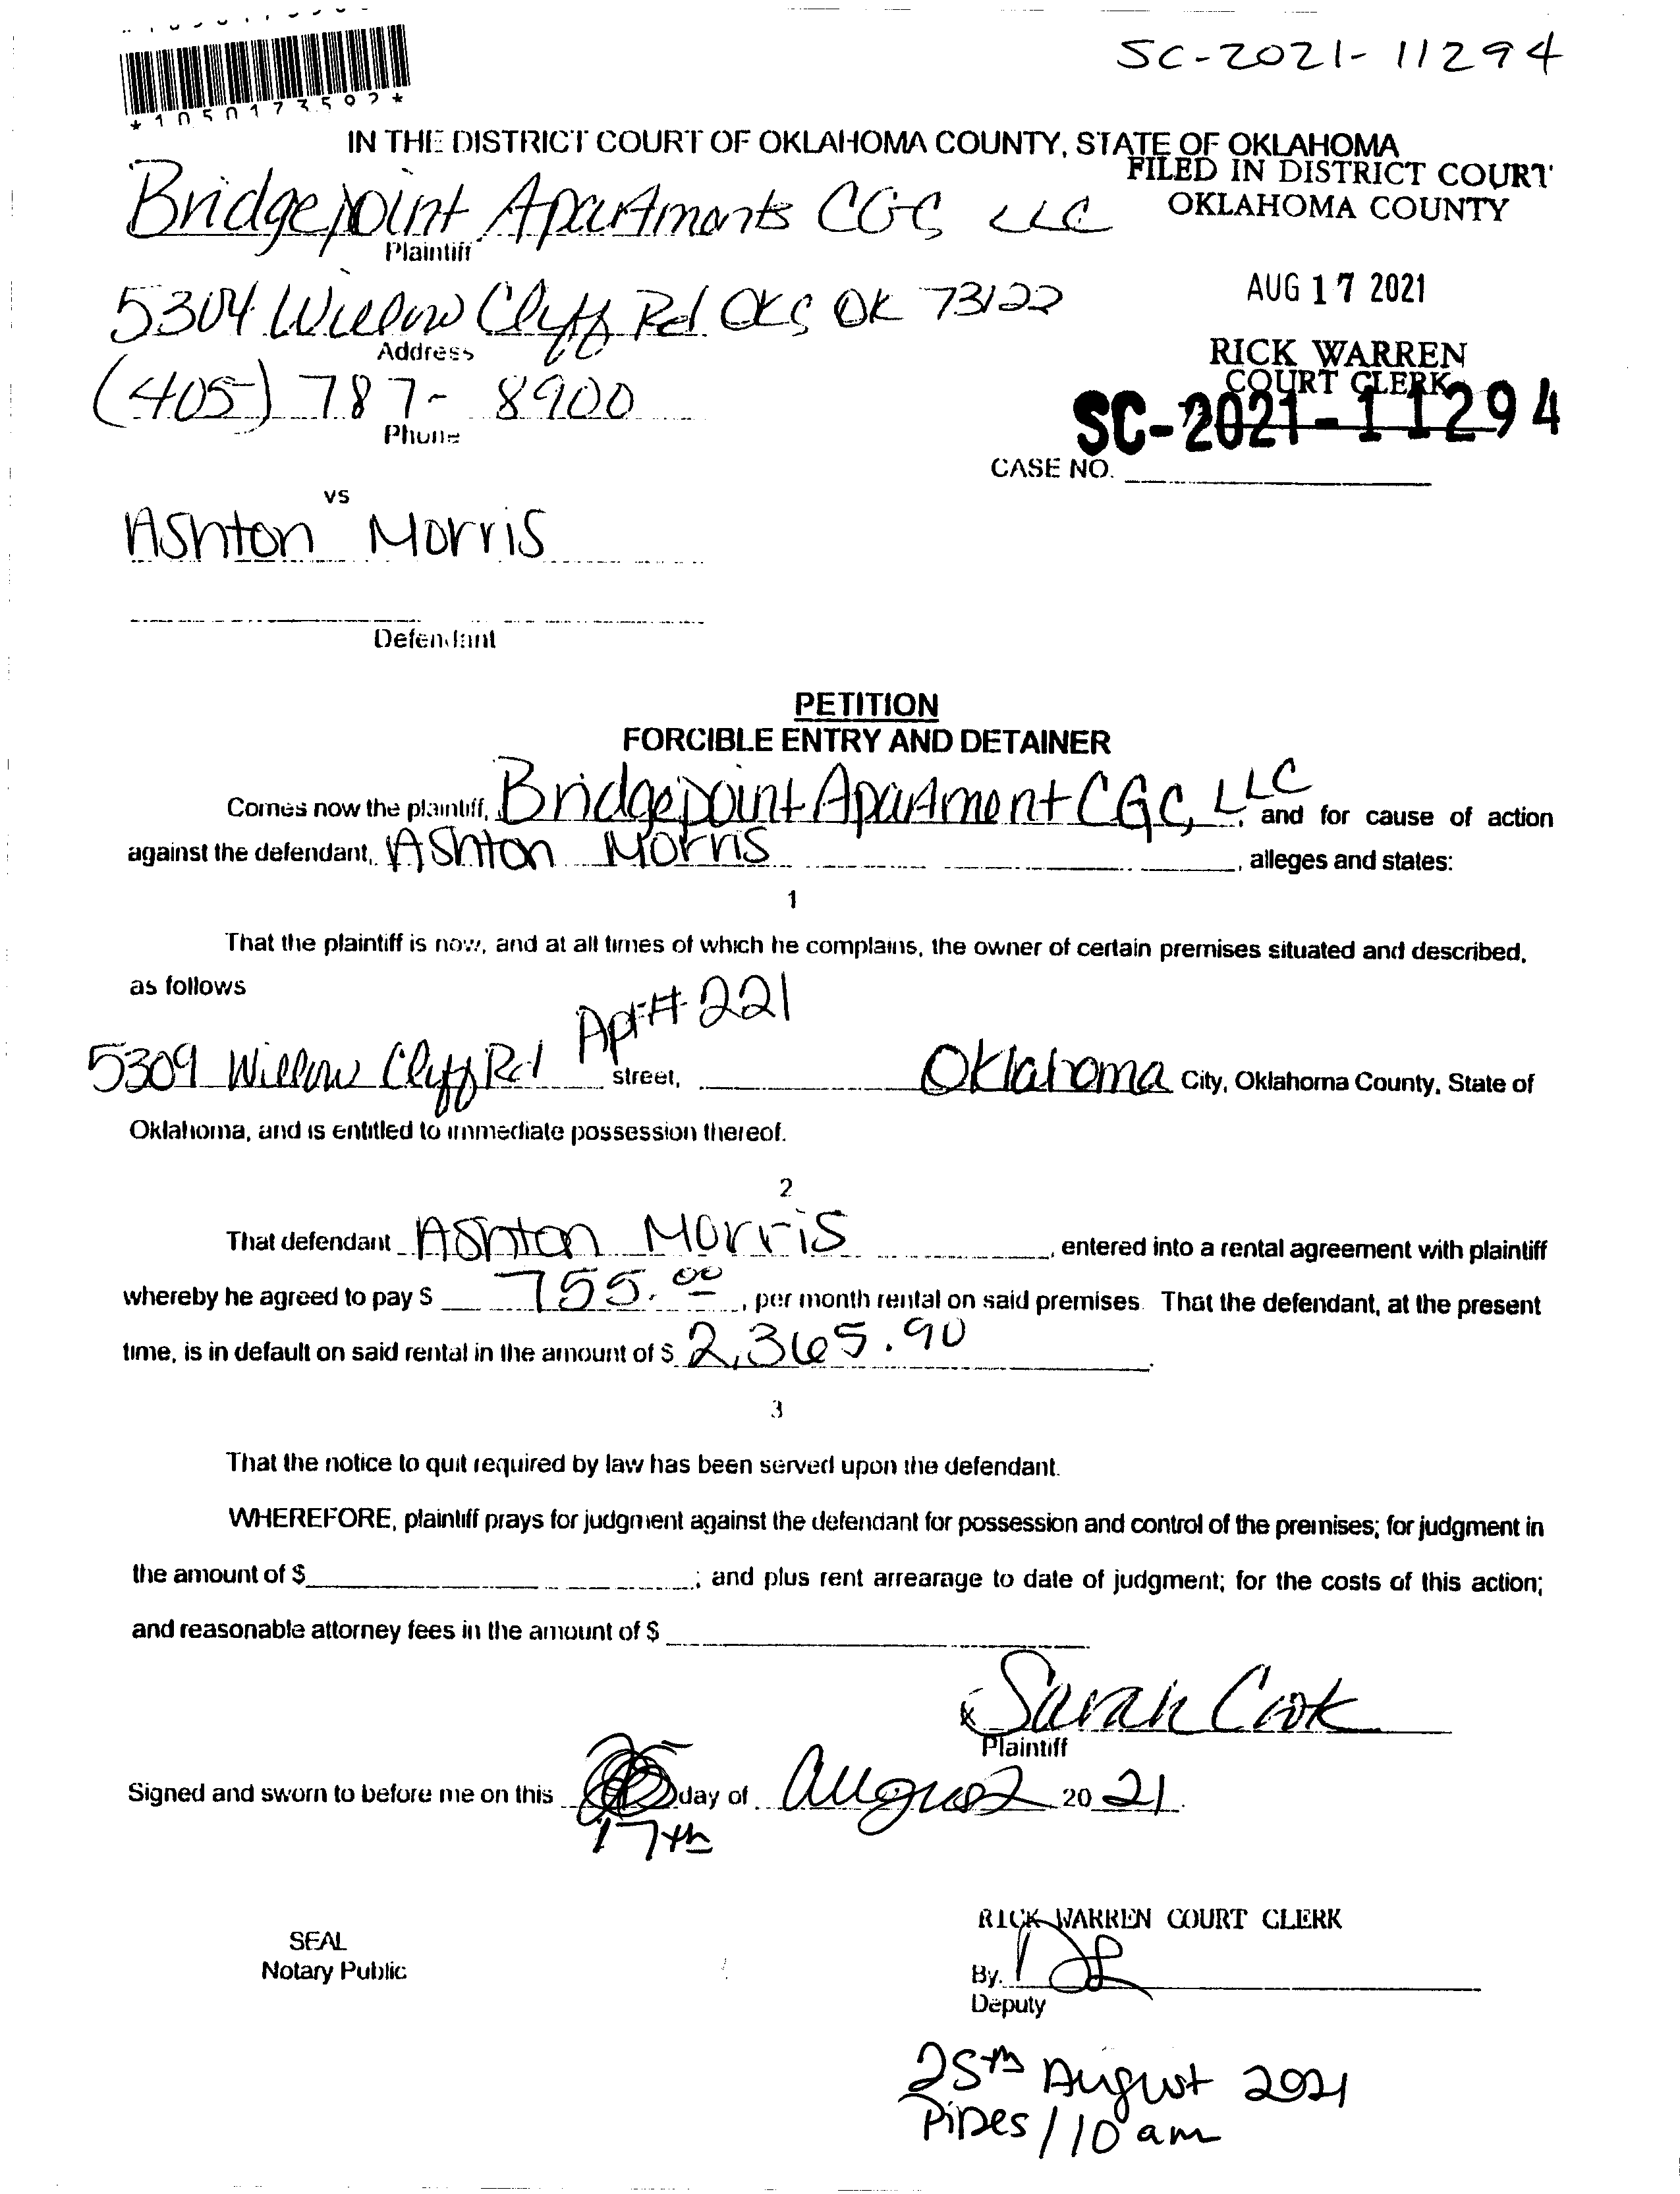 SC-2021-11294
*1050173592*
IN THE DISTRICT COURT OF OKLAHOMA COUNTY, STATE OF OKLAHOMA
FILED IN DISTRICT COURT
OKLAHOMA COUNTY
Bridgepoint Apartments CGC, LLC
Plaintiff
AUG 17 2021
5304 Willow Cliff Rd OKC OK 73122
Address
RICK WARREN
COURT CLERK
(405) 787-8900
Phone
SC-2021-11294
CASE NO.
vs
Ashton Morris
Defendant
PETITION
FORCIBLE ENTRY AND DETAINER
Comes now the plaintiff, Bridgepoint Apartment CGC, LLC, and for cause of action
against the defendant, Ashton Morris, alleges and states:
1
That the plaintiff is now, and at all times of which he complains, the owner of certain premises situated and described,
as follows
Apt# 221
5309 Willow Cliff Rd street, Oklahoma City, Oklahoma County, State of
Oklahoma, and is entitled to immediate possession thereof.
2
That defendant Ashton Morris, entered into a rental agreement with plaintiff
whereby he agreed to pay $ 755.00, per month rental on said premises. That the defendant, at the present
time, is in default on said rental in the amount of $ 2,365.90.
3
That the notice to quit required by law has been served upon the defendant.
WHEREFORE, plaintiff prays for judgment against the defendant for possession and control of the premises; for judgment in
the amount of $; and plus rent arrearage to date of judgment; for the costs of this action;
and reasonable attorney fees in the amount of $
x Sarah Cook
Plaintiff
Signed and sworn to before me on this day of August 20 21.
17th
RICK WARREN COURT CLERK
SEAL
Notary Public
By.
Deputy
25th August 2021
Pipes / 10 am